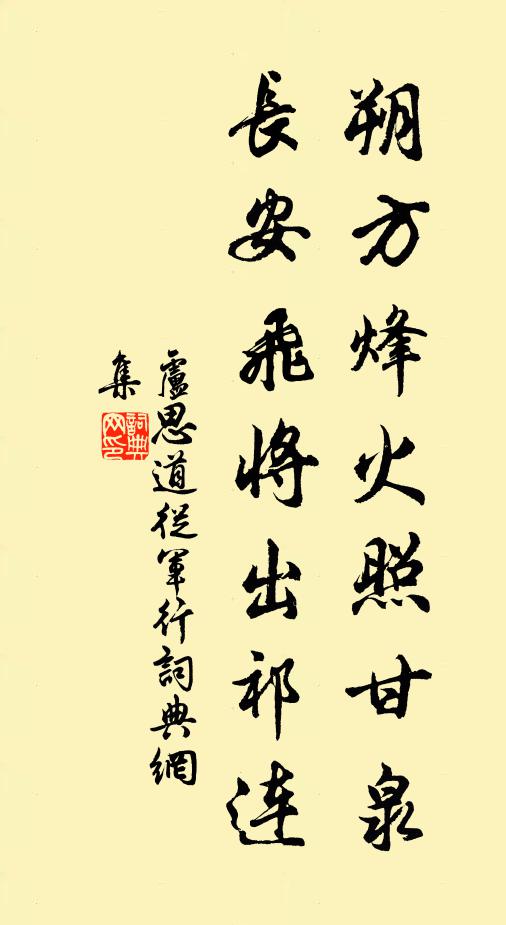 朔方烽火照甘泉
長安飛將出祁連
盧思道從軍行詞典網
集
詞典
网印